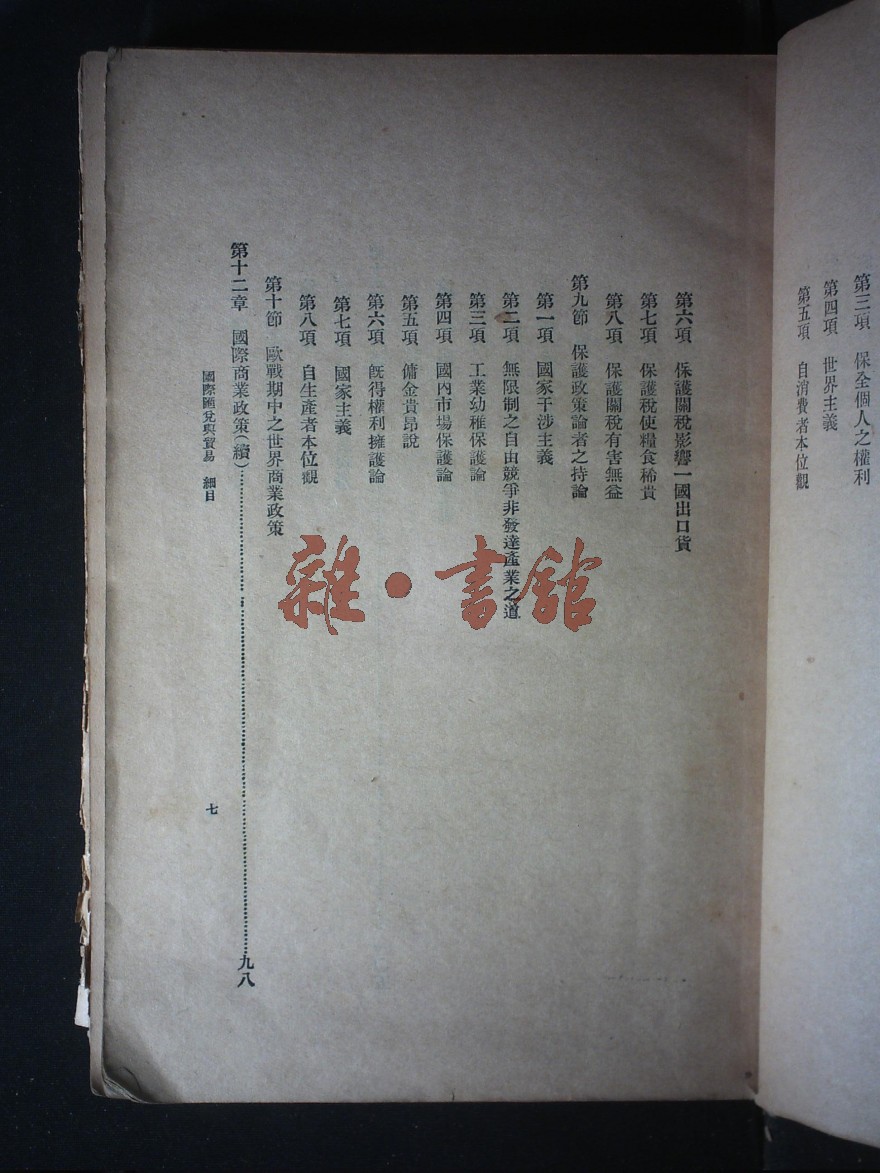 第三項　保全個人之權利
第四項　世界主義
第五項　自消費者本位觀
第六項　保護關稅影響一國出口貨
第七項　保護稅使糧食稀貴
第八項　保護關稅有害無益
第九節　保護政策論者之持論
第一項　國家干涉主義
第二項　無限制之自由競爭非發達產業之道
第三項　工業幼稚保護論
第四項　國內市場保護論
第五項　傭金貴昂說
第六項　旣得權利擁護論
第七項　國家主義
第八項　自生產者本位觀
第十節　歐戰期中之世界商業政策
第十二章　國際商業政策(續)……九八
國際匯兌與貿易　細目
七
雜·書館